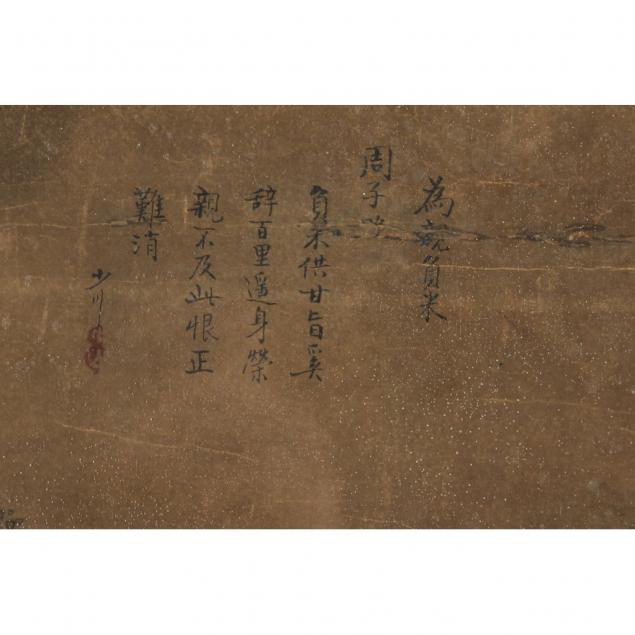 為親負米
周子路
負米供甘旨奚
辞百里遥身榮
親不及此恨正
難消
少川